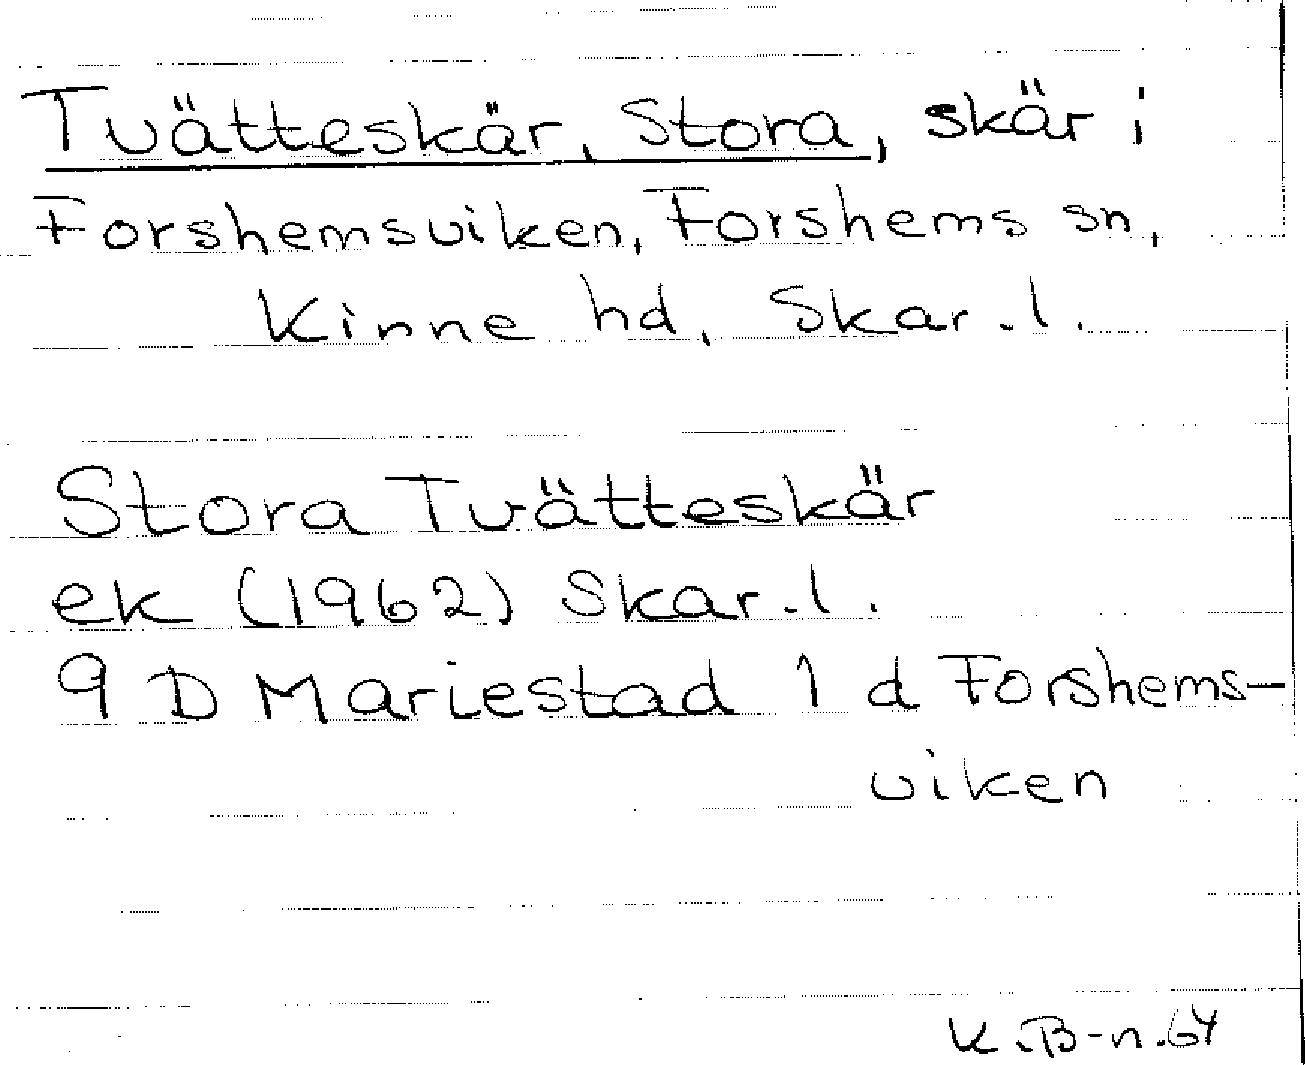 Tvätteskär, Stora, skär i
Forshemsviken, Forshems sn,
Kinne hd, Skar.l.
Stora Tvätteskär
ek (1962) Skar.l.
9 D Mariestad 1 d Forshems-
viken
K.B-n.64